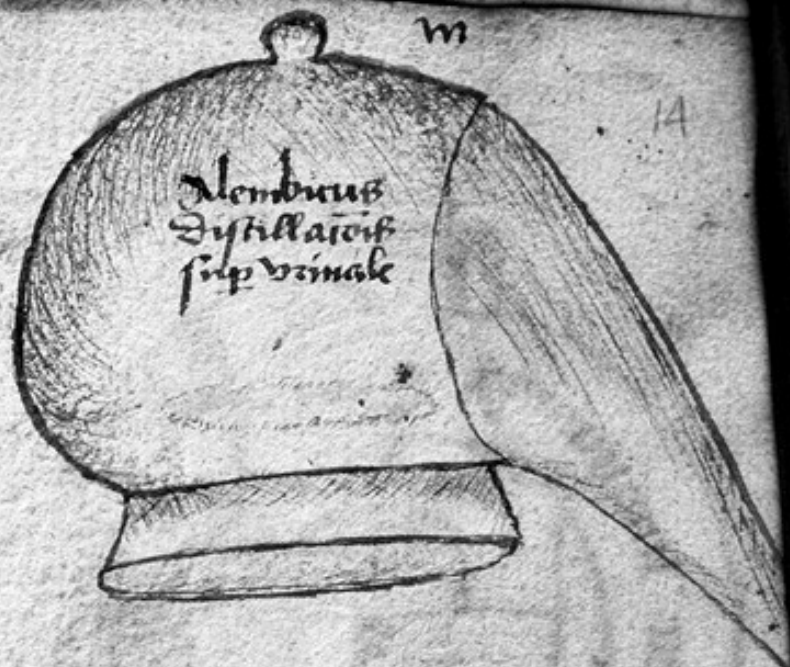 m
14
Alembicus
distillac̄ois
sup vrinale